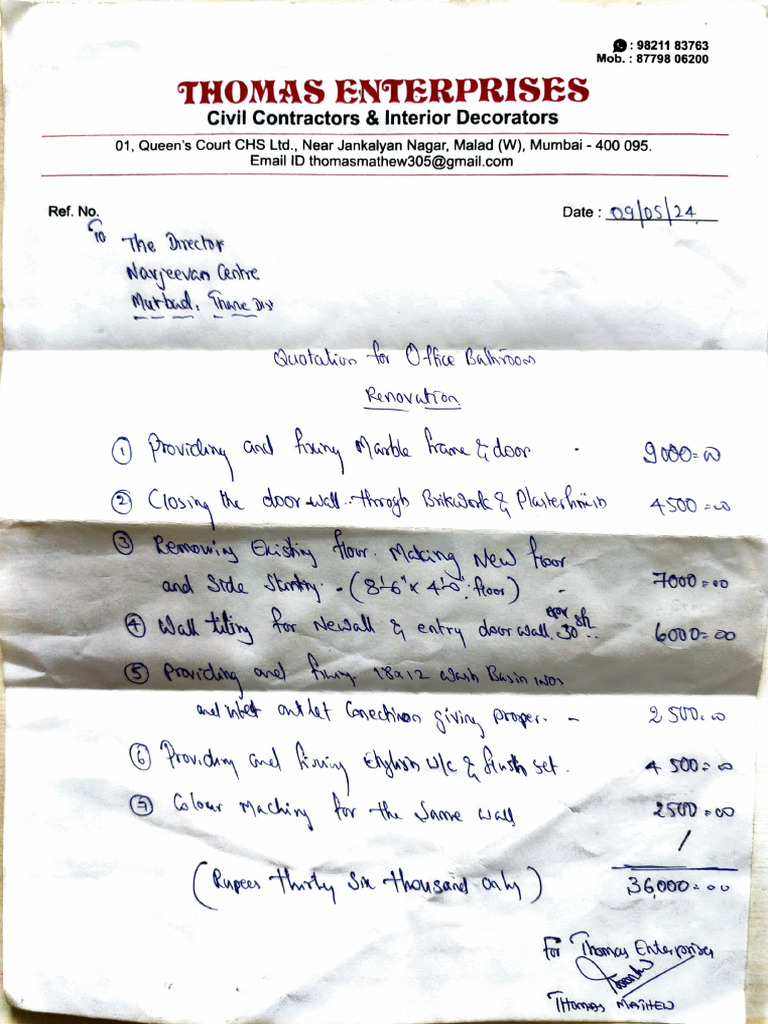 : 98211 83763
Mob. : 87798 06200
THOMAS ENTERPRISES
Civil Contractors & Interior Decorators
01, Queen's Court CHS Ltd., Near Jankalyan Nagar, Malad (W), Mumbai - 400 095.
Email ID thomasmathew305@gmail.com
Ref. No. Date : 09/05/24
To
The Director
Navjeevan Centre
Murbad, Thane Dist
Quotation for Office Bathroom
Renovation
1 Providing and fixing Marble frame & door - 9000=00
2 Closing the door wall throgh Brikwork & 4500=00
3 Removing Existing floor. Making New floor
and Side - (8'-6" x 4'-0" floor) - 7000=00
4 Wall tiling for Newall & entry door wall 30 6000=00
5 Providing and fixing 18x12 Wash Basin
and inlet outlet Conection giving proper. - 2500=00
6 Providing and fixing W/c & flush set. 4500=00
7 Colour Maching for the Same wall 2500=00
(Rupees thirty Six thousand only) 36,000=00
For Thomas Enterprises
THOMAS MATHEW